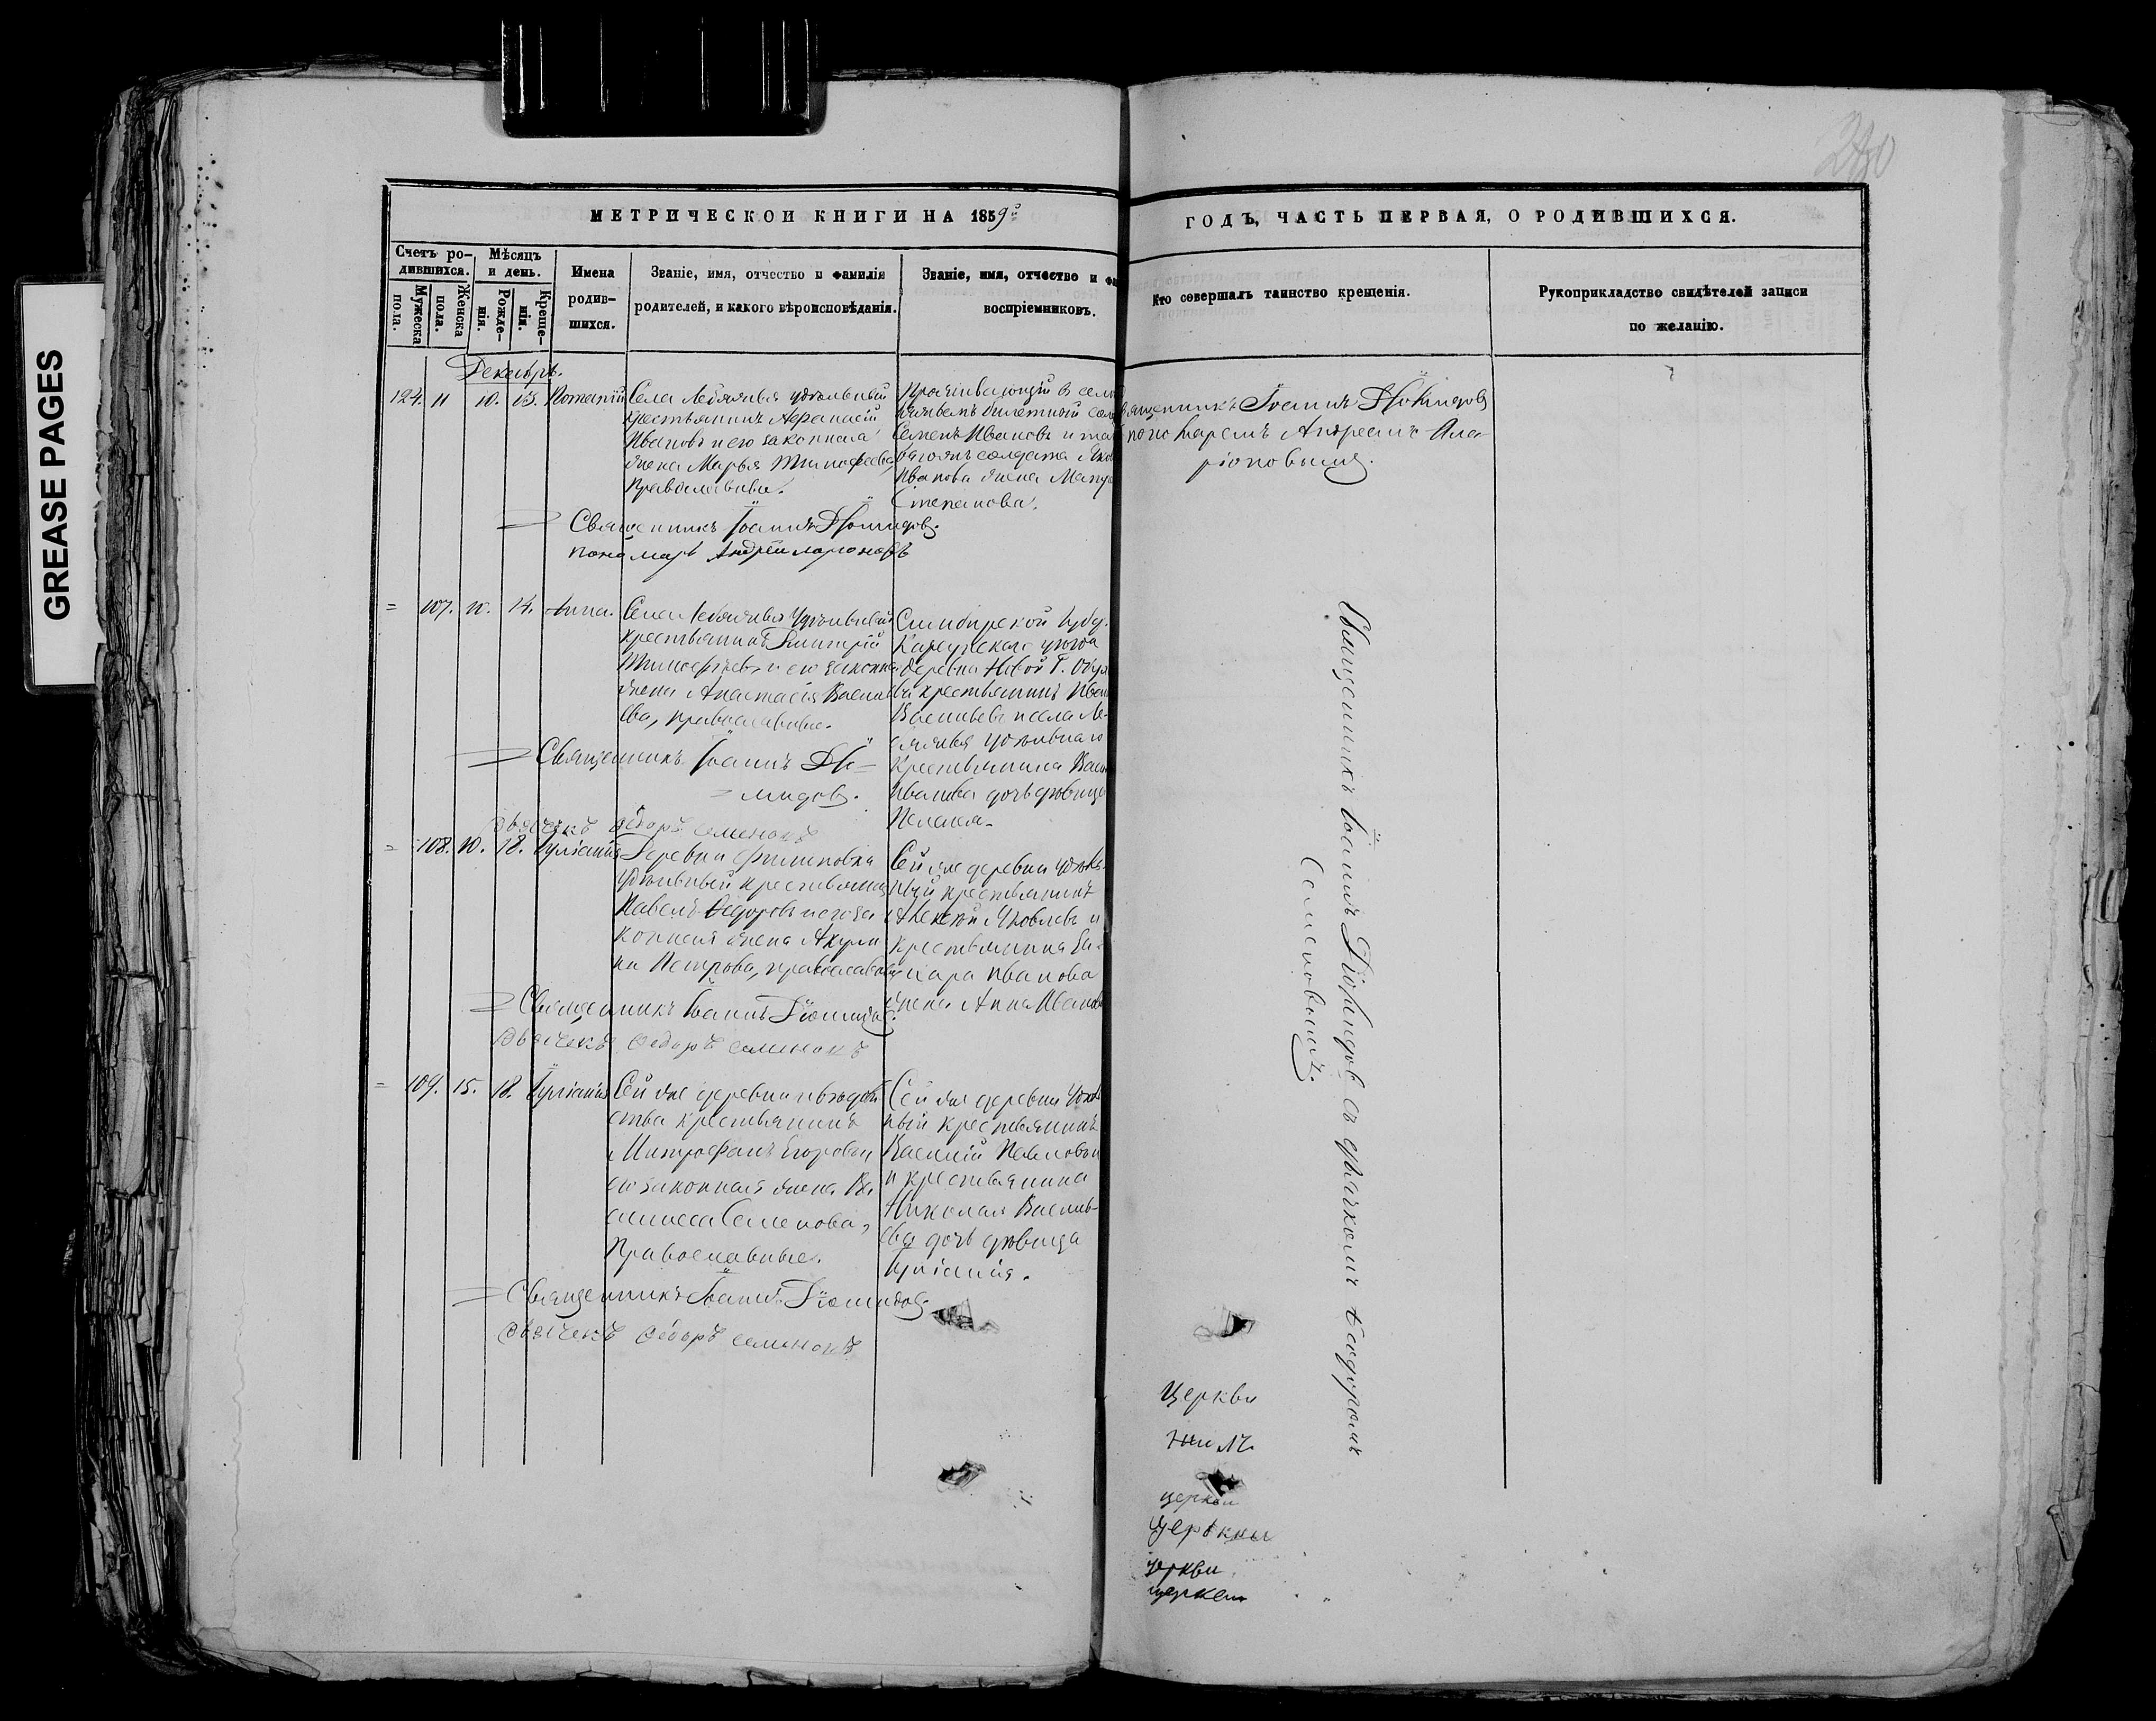 GREASE PAGES
280
МЕТРИЧЕСКОЙ КНИГИ НА 1859й
ГОДЪ, ЧАСТЬ ПЕРВАЯ, О РОДИВШИХСЯ.
Счетъ ро-
дившихся.
Мужеска
пола.
Женска
пола.
Мѣсяцъ
и день.
Рожде-
нія.
Креще-
нія.
Имена
родив-
шихся.
Званіе, имя, отчество и фамилія
родителей, и какого вѣроисповѣданія.
Званіе, имя, отчество и фа
воспріемниковъ.
Кто совершалъ таинство крещенія.
Рукоприкладство свидѣтелей записи
по желанію.
Декабрь.
124. 11 10. 13.
Села Лебяжья удѣльный
крестьянинъ Афанасій
Ивановъ и его законная
жена Марья Тимофеева,
Православные.
Проживающій в сел
билетный
Семенъ Ивановъ и
солдата
Иванова жена
Степанова.
Священникъ Іоаннъ Діомидовъ
понамаремъ Андреемъ Ила-
ріоновымъ.
Священникъ Іоаннъ Діомидовъ.
понамарь Андрей
= 107. 10. 14. Анна.
Села Лебяжья Удѣльный
крестьянинъ Димитрій
Тимофѣевъ и его законная
жена Анастасія Василь
ева, православные.
Симбирской Губер.
Карсунскаго уѣзда
деревни Новой
крестьянинъ Иван
Васильевъ и села Ле-
бяжья удѣльнаго
крестьянина Васи
Иванова дочь дѣвица
Пелагея.
Священникъ Іоаннъ Діо=
=мидовъ.
дьячекъ Ѳедоръ семеновъ
= 108. 10. 18. Іуліанія
Деревни Филиповки
удѣльный крестьянинъ
Павелъ Ѳедоровъ и его за
конная жена Акули
на Петрова, православные
Сей же деревни удѣль
ный крестьянинъ
Алексѣй Яковлевъ и
крестьянина За-
хара Иванова
жена Анна Иванова
Священникъ Іоаннъ Діомидовъ.
дьячекъ Ѳедоръ семеновъ
= 109. 15. 18. Іуліанія
Сей же деревни и вѣдом
ства крестьянинъ
Митрофанъ Егоровъ и
его законная жена Ва
силиса Семенова,
Православные.
Сей же деревни Удѣль
ный крестьянинъ
Василій Павловъ
и крестьянина
Николая Василь-
ева дочь дѣвица
Іуліанія.
Священникъ Іоаннъ Діомидовъ
дьячекъ Ѳедоръ семеновъ
Священникъ Іоаннъ Діомидовъ съ дьячкомъ Ѳеодоромъ
Семеновымъ.
Церкви
церкви
церкви